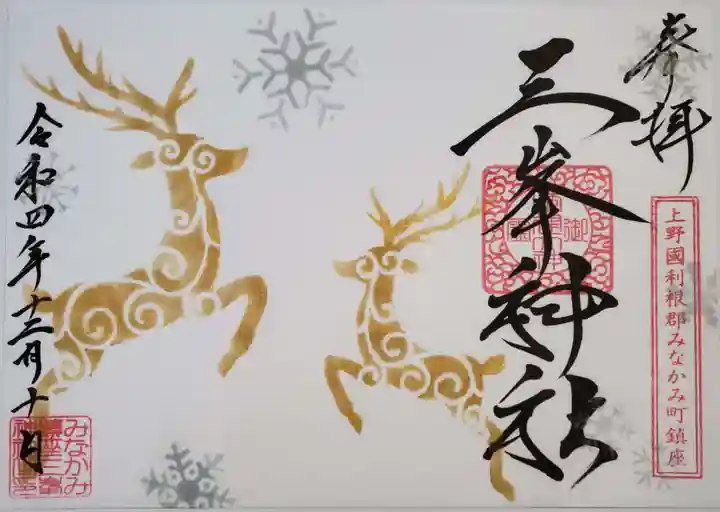 奉拝
上野國利根郡みなかみ町鎮座
三峯神社
令和四年十二月十日
みなかみ
鎮座三峯
神社之印